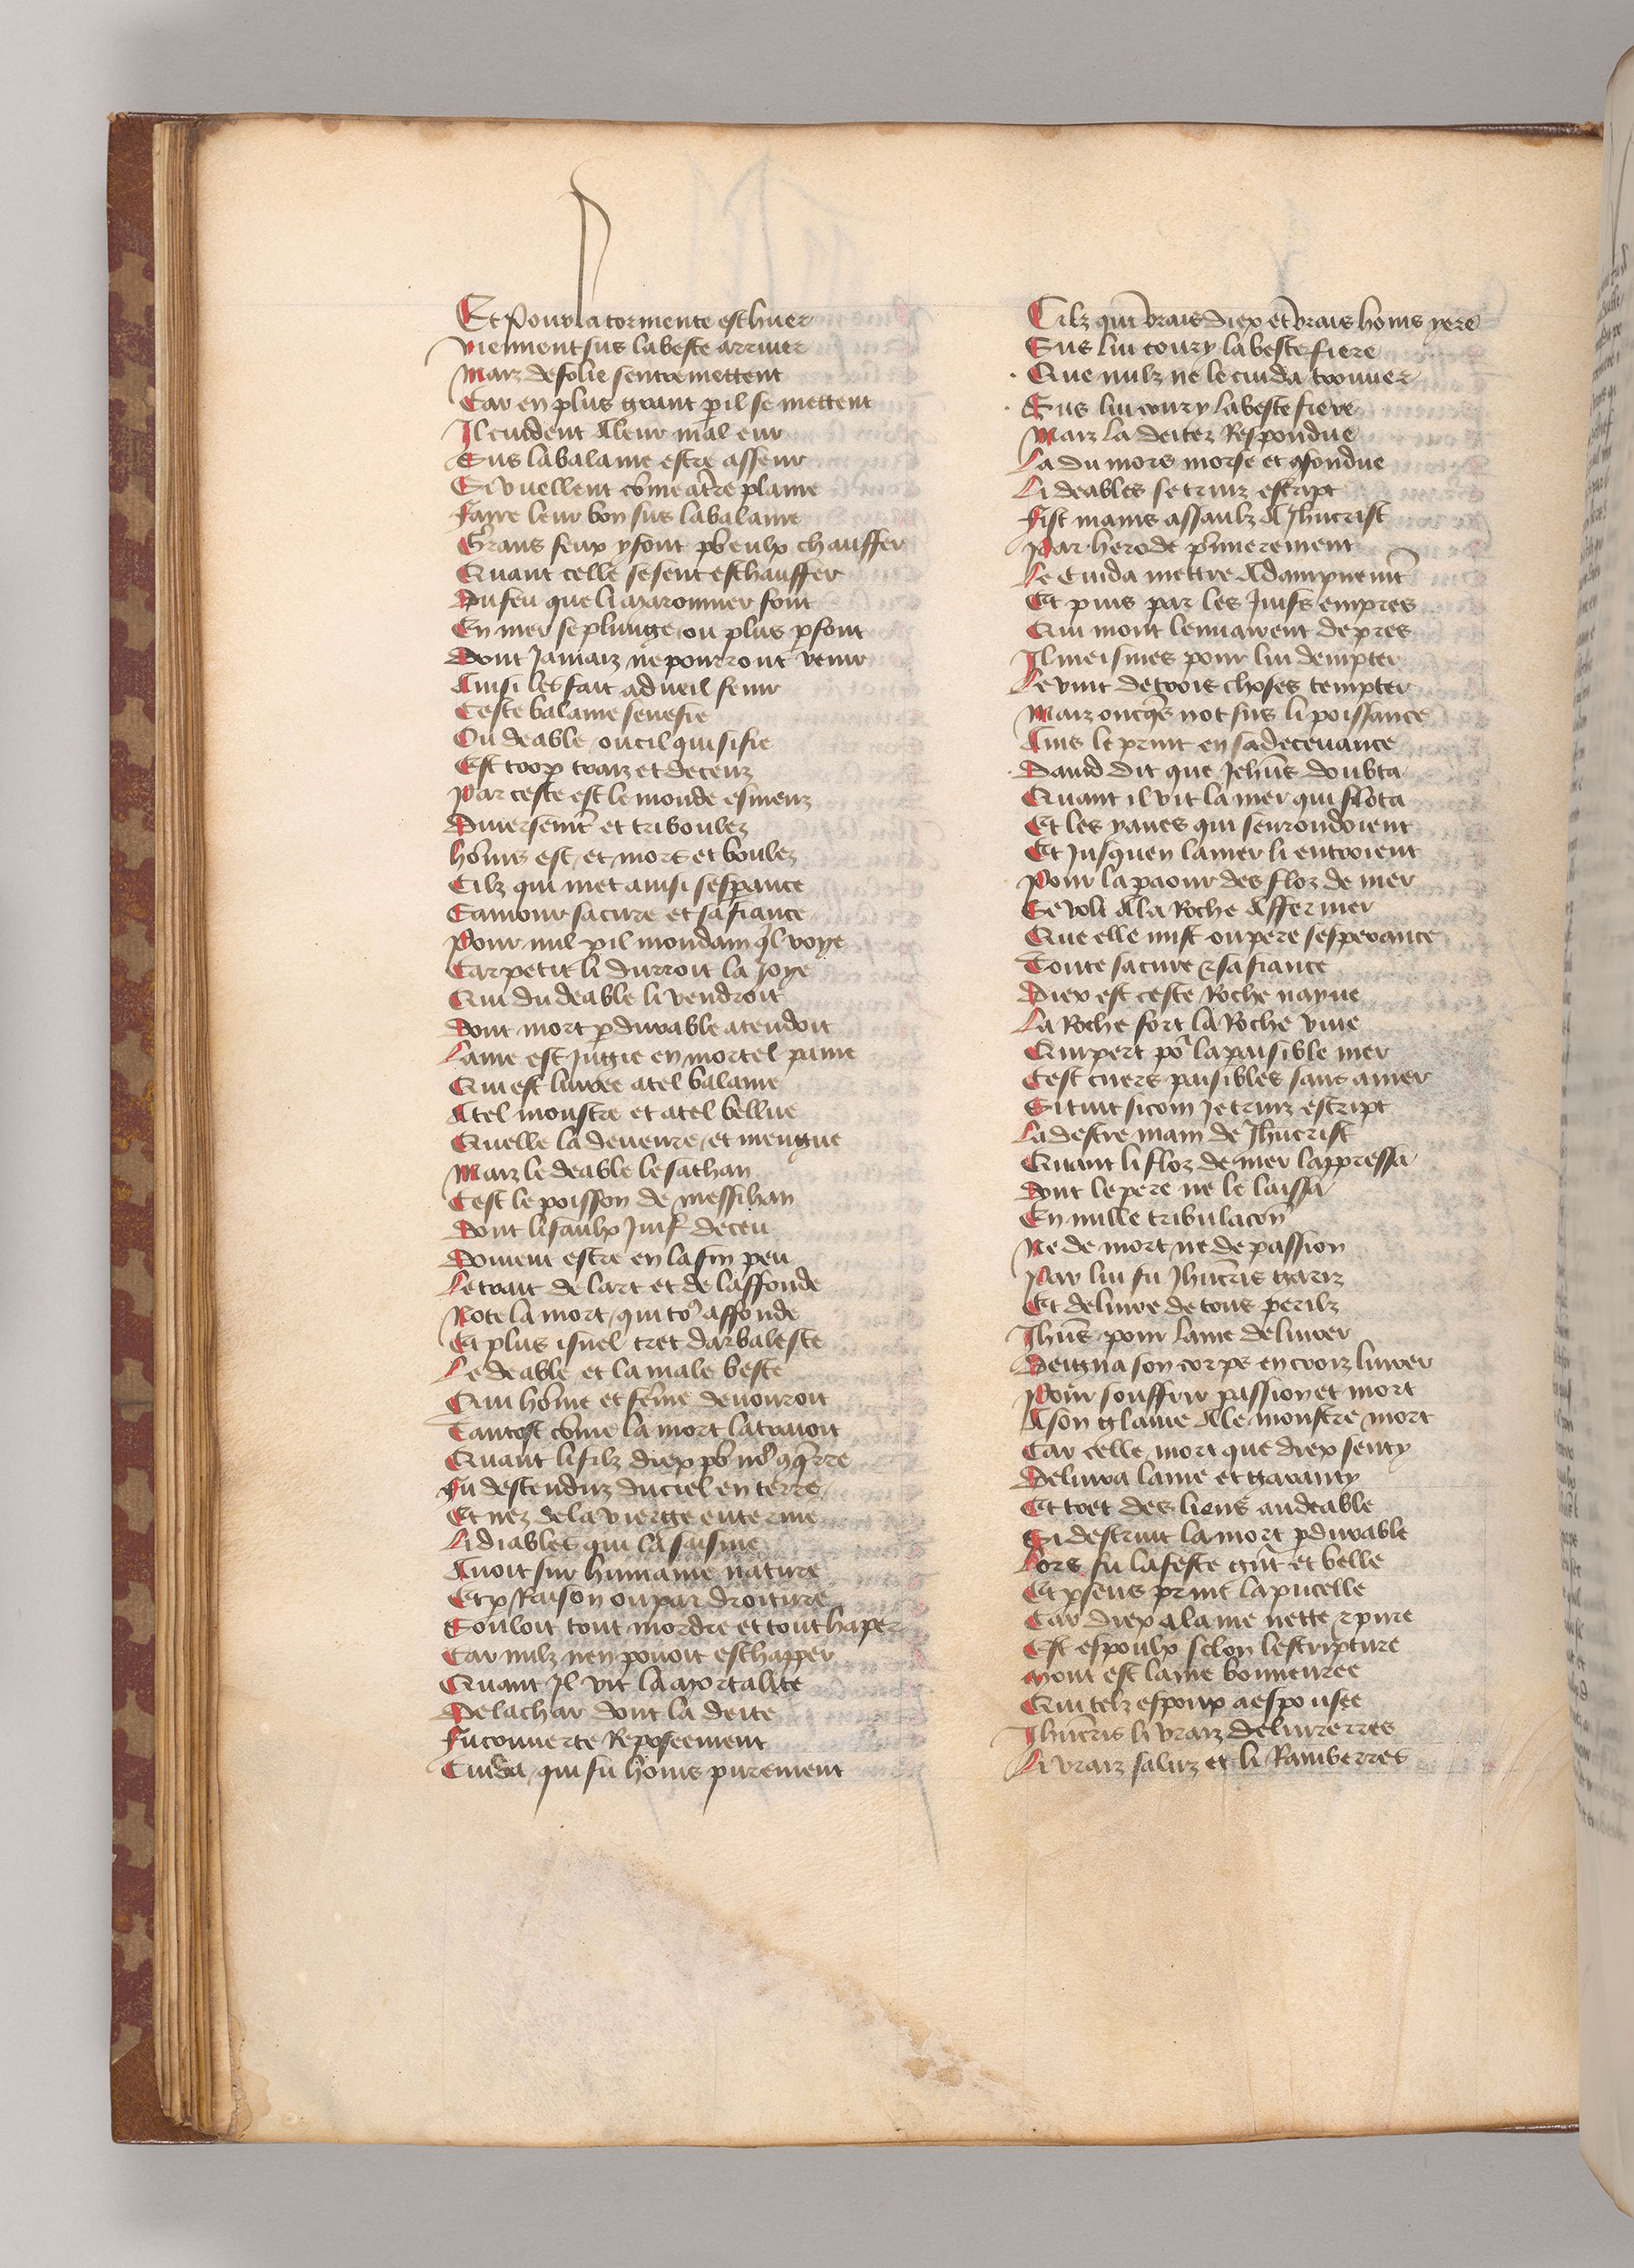 Et pour la tormente eschuer
Viennent sus la beste arriuer
Maiz de folie sentremettent
Car en plus grant pil se mettent
Il cuident A leur mal eur
Sus la balaine estre asseur
Si vuellent cōme a t̄re plaine
Faire leur bon sus la balaine
Grans feux y font po᷑ eulx chauffer
Quant celle se sent eschauffer
Du feu que li maronnier font
En mer se plunge ou plus pfont
Dont Jamaiz ne pourront venir
Ainsi les fait a dueil fenir
Ceste balaine senefie
Ou deable ou cil qui si fie
Est trop traiz et deceuz
Par ceste est le monde esmeuz
Diuersemt̄ et triboulez
hōms est et mors et boulez
Cilz qui met ainsi sespance
Samour sa cure et sa fiance
Pour nul pil mondain ql voye
Car petit li durroit la Joye
Qui du deable li vendroit
Dont mort pdurable atendroit
Lame est Jugie en mortel paine
Qui est liuree a tel balaine
A tel monstre et a tel bellue
Quelle la deueure et mengue
Maiz le deable le sathan
Cest le poisson de messihan
Dont li faulx Juif deceu
Doiuent estre en la fin peu
Le trait de lart et de laffonde
Note la mort qui to᷑ affonde
Et plus isnel tret darbaleste
Le deable et la male beste
Qui hōme et fēme deuouroit
Tantost cōme la mort la traioit
Quant li filz diex po᷑ no᷑ 9q̄rre
Fu descenduz du ciel en terre
Et nez de la vierge enterine
Li diables qui la saisine
Auoit sur humaine nature
Et p Raison ou par droiture
Souloit tout mordre et tout haper
Car nulz nen pouoit eschapper
Quant Il vit la mortalite
De la char dont la deite
Fu couuerte Reposeement
Cuida qui fu hōms purement
Cilz qui vrais diex et vrais homs yere
Sus lui coury la beste fiere
Que nulz ne le cuida trouuer
Sus lui coury la beste fiere
Maiz la deitez Respondue
La du mors morse et 9fondue
Li deables se truiz escript
Fist mains assaulz A Jhucrist
Par herode p̄mierement
Le Cuida mettre A dampnemt̄
Et puis par les Juifs empres
Qui mout lenuairent de pres
Il meismes pour lui dempter
Le vint de trois choses tempter
Maiz oncq̄s not sus li poissance
Ains le print en sa deceuance
Dauid dit que Jehūs doubta
Quant il vit la mer qui flota
Et les yaues qui seurondoient
Et Jusquen la mer li entroient
Pour la paour des floz de mer
Se volt A la Roche Affermer
Que elle mist ou pere sesperance
Toute sa cure ⁊ sa fiance
Diex est ceste Roche nayue
La Roche fort la Roche viue
Qui pert po᷑ la paisible mer
Cest cuers paisibles sans amer
Si tint sicom Je truiz escript
La destre main de Jhucrist
Quant li floz de mer lappressa
Dont le pere ne le laissa
En nulle tribulacōn
Ne de mort ne de passion
Par lui fu Jhūcris gariz
Et deliure de tous perilz
Jhūs pour lame deliurer
Deigna son corps en croiz liurer
Pour souffrir passion et mort
A son glaiue A le monstre mort
Car celle mort que diex senty
Deliura lame et garanty
Et tret des liens au deable
Si destruit la mort pdurable
Lors fu la feste gn̄t et belle
Et psens print la pucelle
Car diex a lame nette ⁊ pure
Est espoulx selon lescripture
Mout est lame bonneuree
Qui telz espoux a espousee
Jhūcris li vraiz deliurerres
Li vraiz saluz et li Raimberres